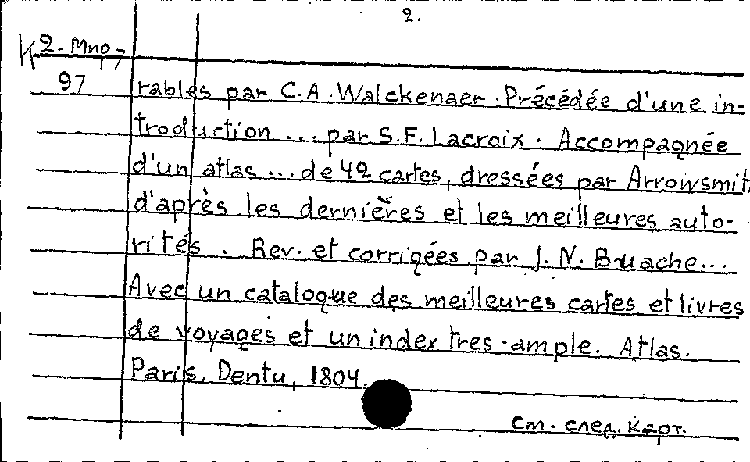 2.
К 2-Мир-7
97
rables par C.A. Walckenaer. Précédée d'une in-
troduction ... par S.F. Lacroix. Accompagnée
d'un atlas ... de 42 cartes, dressées par Arrowsmit,
d'après les dernières et les meilleures auto-
rités. Rev. et corrigées par J. N. Buache...
Avec un catalogue des meilleures cartes et livres
de voyages et un index tres-ample. Atlas.
Paris, Dentu, 1804.
См. след. карт.